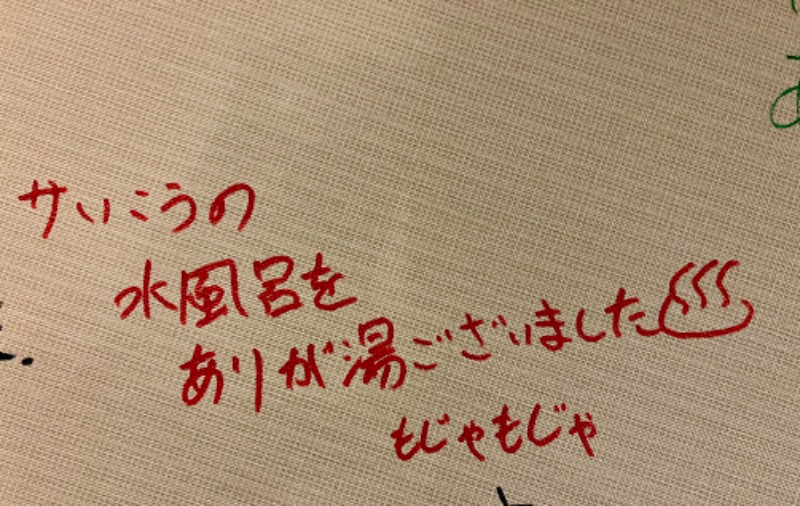 サいこうの
水風呂を
ありが湯ございました♨
もじゃもじゃ